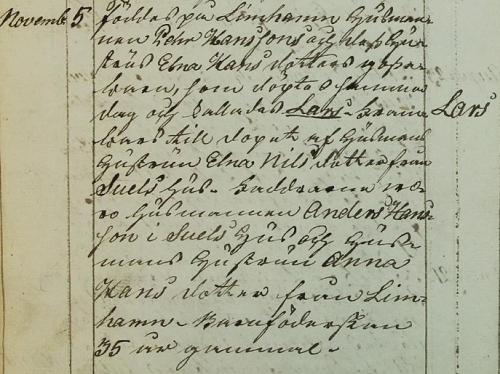 Novemb: 5 Föddes på Limhamn Husman-
nen Pehr Hanssons och dess Hu-
strus Elna Hansdotters gosse-
barn, som döptes samma
dag och kallades Lars - bram Lars
bars till dopet af Husmans
Hustrun Elna Nilsdotter från
Suels Hus - Faddrarne wo-
ro Husmannen Anders Hans-
son i Suels Hus och Hus-
mans Hustrun Anna
Hansdotter från Lim-
hamn - Barnföderskan
35 år gammal -